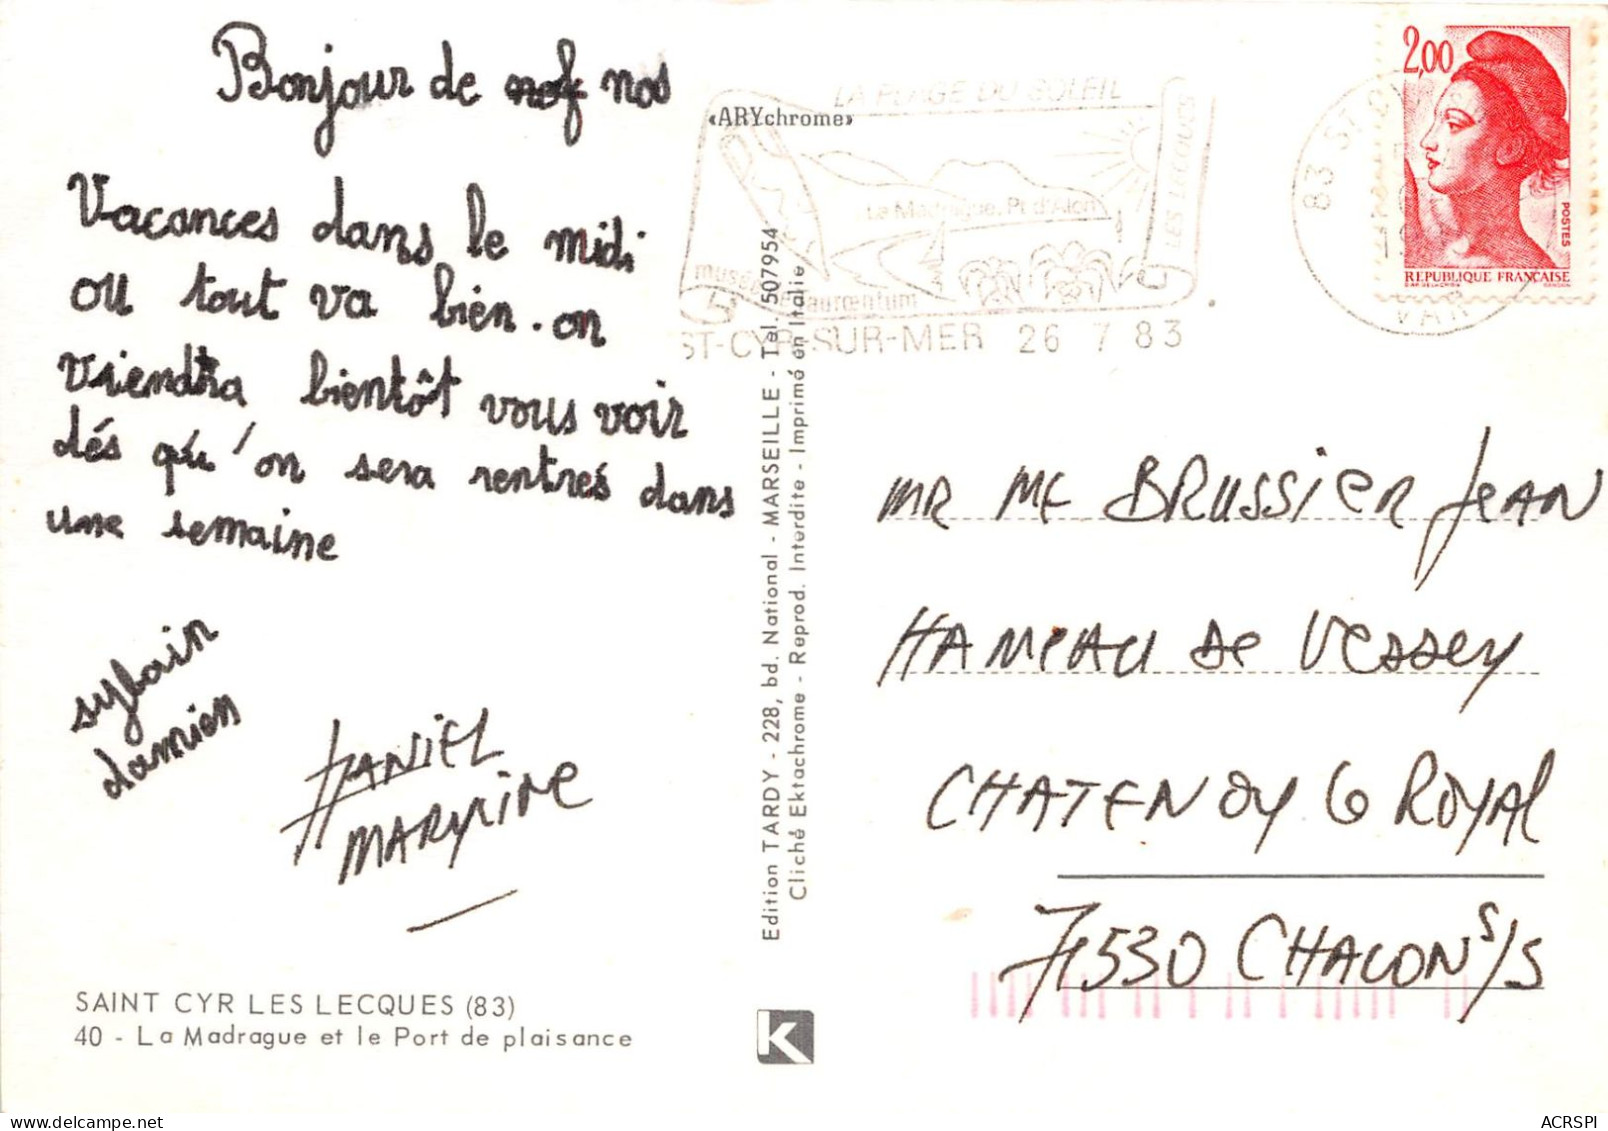 Bonjour de nos
Vacances dans le midi
ou tout va bien. on
vriendra bientôt vous voir
dés qu'on sera rentrés dans
une semaine
sylvain
damien
DANIEL
MARYLINE
SAINT CYR LES LECQUES (83)
40 - La Madrague et le Port de plaisance
«ARYchrome»
Edition TARDY - 228, bd. National - MARSEILLE - Tel. 507954
Cliché Ektachrome - Reprod. Interdite - Imprimé en Italie
K
LA PLAGE DU SOLEIL
La Madrague, Pt d'Alon
LES LECQUES
musée de Tauroentum
ST-CYR-SUR-MER 26 7 83
83 ST-CYR
VAR
2,00
POSTES
REPUBLIQUE FRANÇAISE
MR ME BRUSSIER JEAN
HAMEAU de VESSEY
CHATENOY LE ROYAL
71530 CHALON S/S
ACRSPI